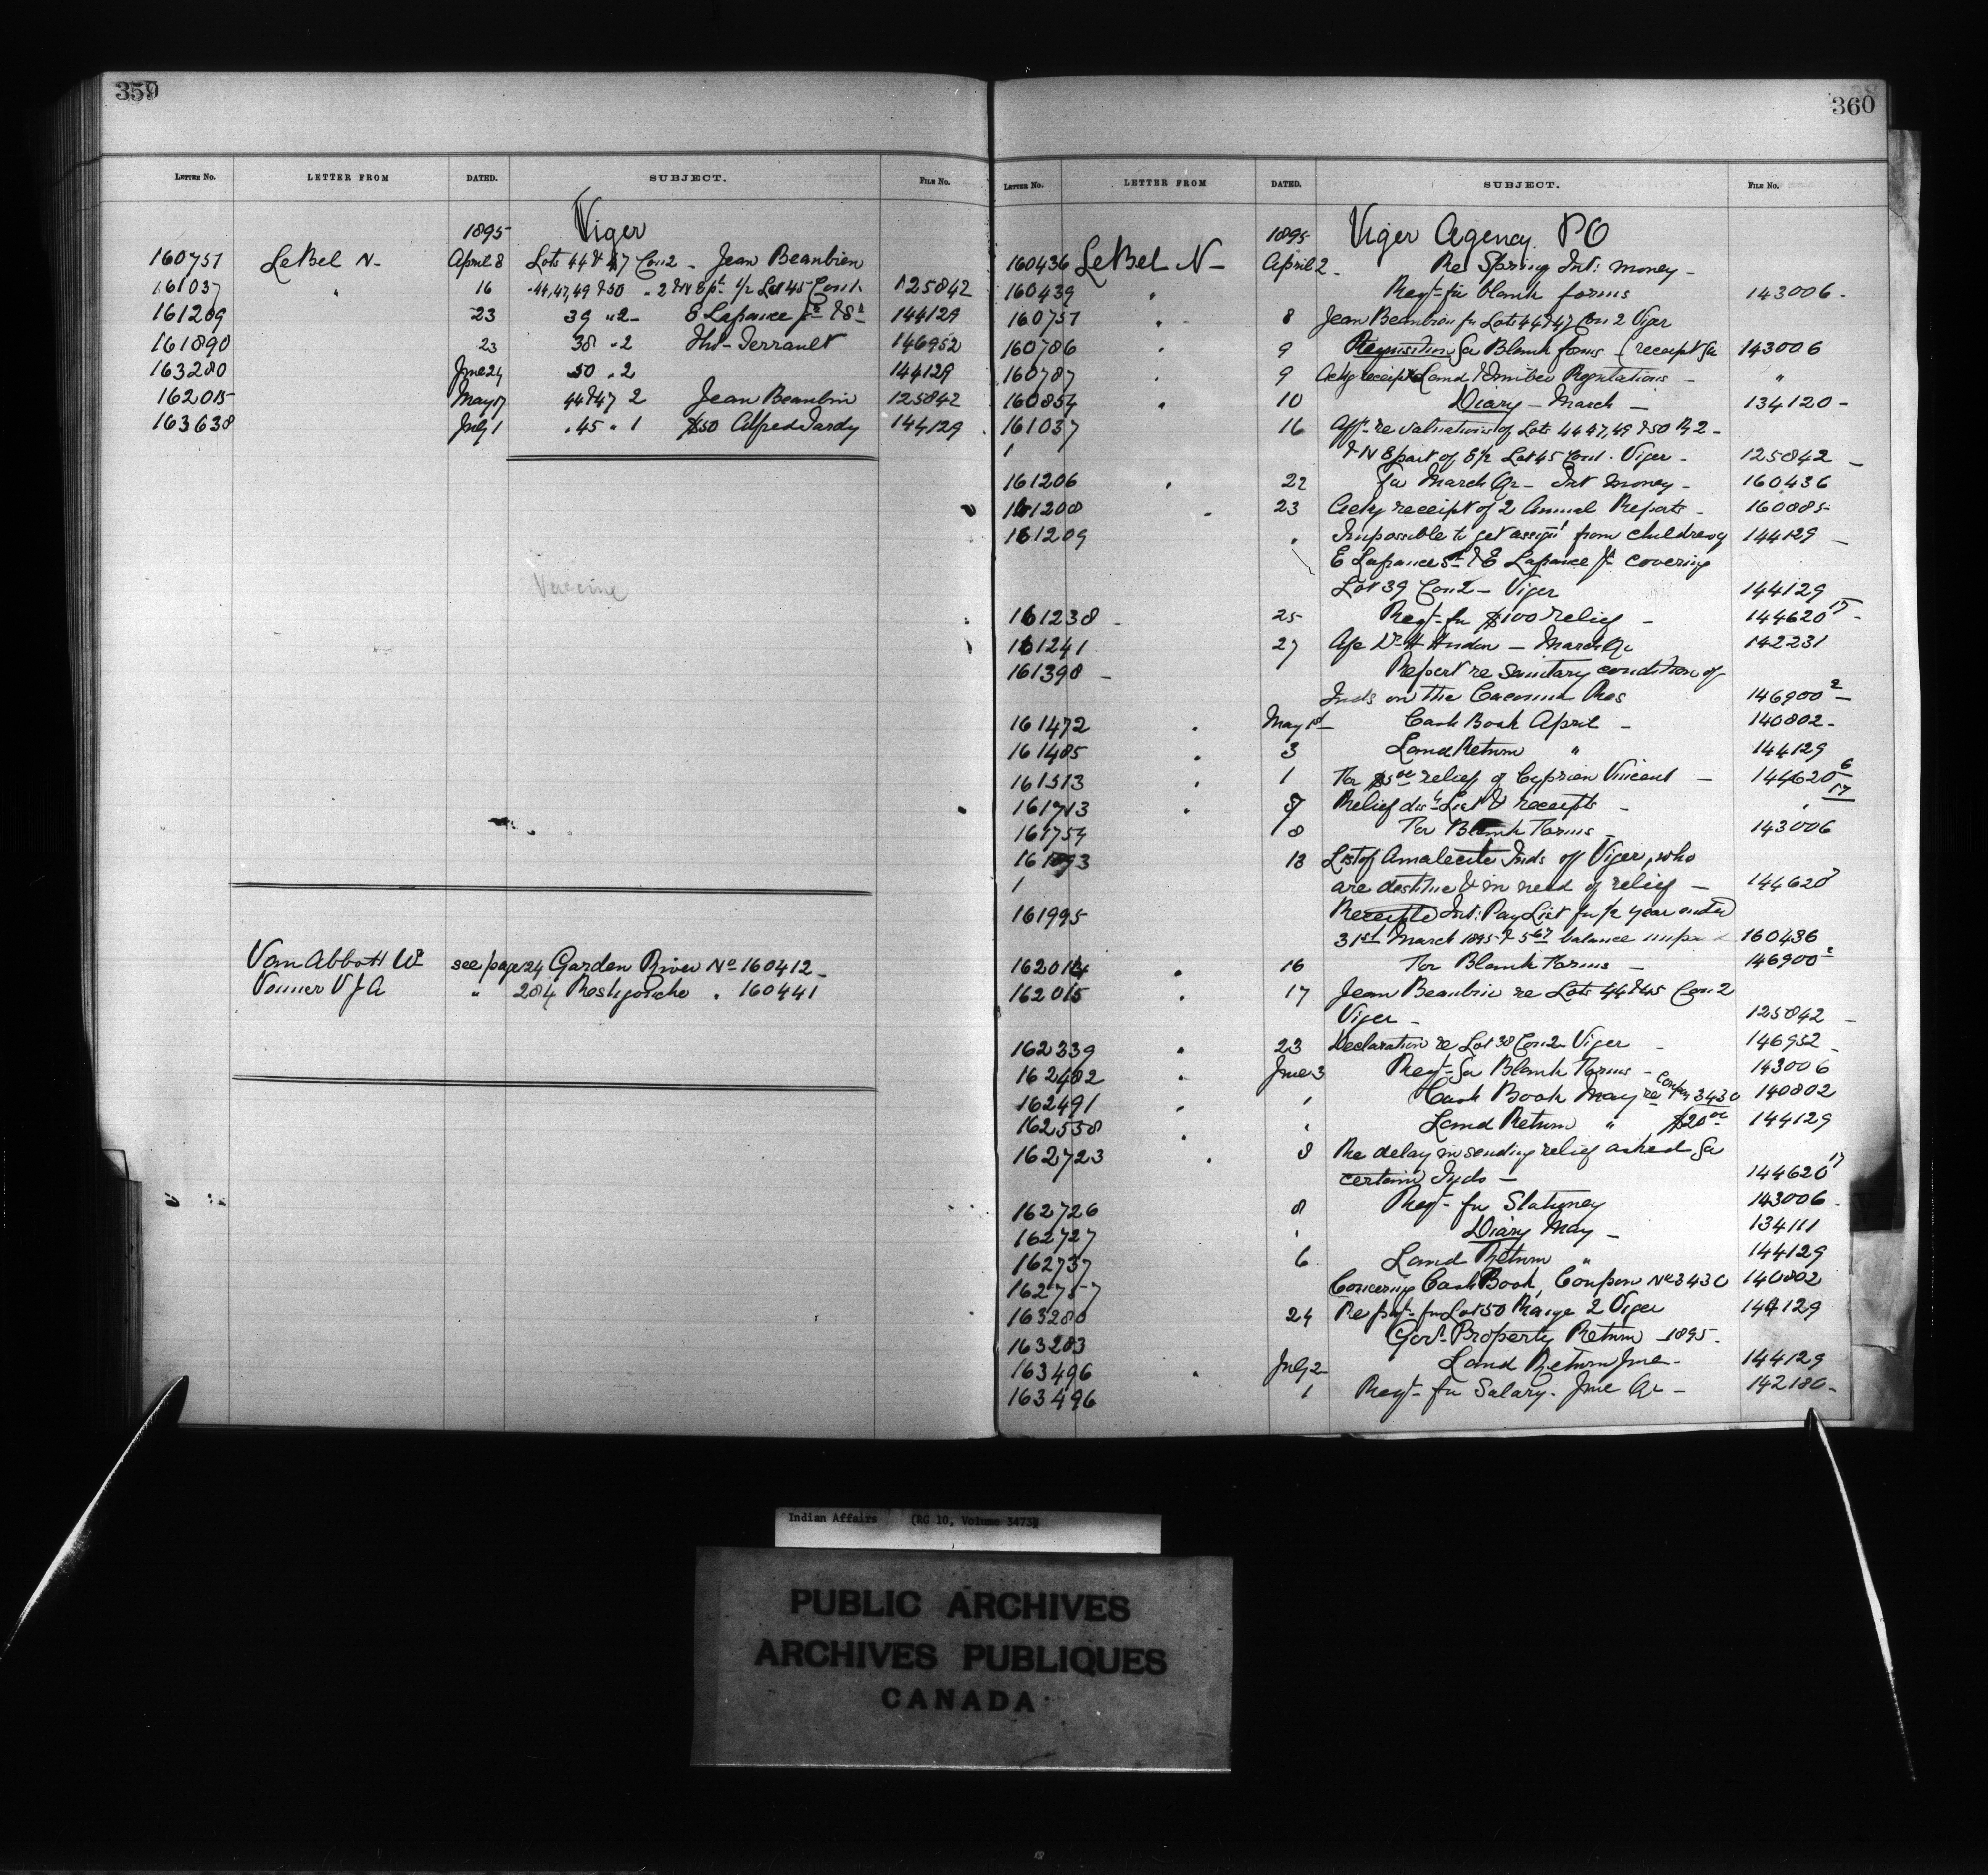 359
LETTER NO. LETTER FROM DATED. SUBJECT. FILE NO.
1895 Viger
160751 LeBel N- April 8 Lots 44 & 47 Con 2 - Jean Beaubien
161037 " 16 "44,47,49 & 50 " 2 & N E pt 1/2 Lot 45 Con 1. 125842
161209 23 39 " 2 - E Lapance Jr & Sr 144129
161890 23 38 " 2 Thos Terrault 146952
163280 June 24 50 " 2 144129
162015 May 17 44 & 47 2 Jean Beaubin 125842
163638 July 1 " 45 " 1 $50 Alfred Tardy 144129
Vaccine
Van Abbott Wm see page 24 Garden River No 160412 -
Venner V J A " 284 Restigouche " 160441
360
LETTER NO. LETTER FROM DATED. SUBJECT. FILE NO.
1895 Viger Agency. PQ
160436 LeBel N - April 2 - Re Spring Int: money -
160439 " Reqt - for blank forms 143006 -
160751 " 8 Jean Beaubien for Lots 44 & 47 Con 2 Viger
160786 " 9 Requisition for Blank forms - (receipt for 143006
160787 " 9 Ackg receipt Land & Timber Regulations - "
160854 " 10 Diary - March - 134120 -
161037 16 Afft re valuations of Lots 44 47, 49 & 50 R 2 -
& N E part of E 1/2 Lot 45 Con 1. Viger - 125842 -
161206 " 22 for March Qr - Int money - 160436
161208 " 23 Ackg receipt of 2 Annual Reports - 160885
161209 " Impossible to get assigt from children of 144129 -
E Lapance Sr & E Lapance Jr covering
Lot 39 Con 2 - Viger 144129
161238 - 25 Reqt - for $100 relief - 144620 17 -
161241 27 A/c Dr H Hudon - March Qr 142231
161398 - 1 Report re Sanitary condition of
Inds on the Cacouna Res 146900 2 -
161472 " May 1st - Cash Book April - 140802 -
161485 " 3 Land Return " 144129
161513 " 1 For $5 00 relief of Cyprien Vincent - 144620 6
161713 " 7 Relief dist List & receipts - " 17
161754 8 For Blank Forms - 143006
161893 13 List of Amalecite Inds of Viger, who
are destitue & in need of relief - 144620
161995 Receipted Int: Pay List for 1/2 year ended
31st March 1895 & 5 67 balance unpaid 160436
162014 " 16 For Blank Forms - 146900 2
162015 " 17 Jean Beaubin re Lots 44 & 45 Con 2
Viger - 125842 -
162339 " 23 Declaration re Lot 38 Con 2 - Viger - 146952 -
162482 " June 3 Reqt - for Blank Forms - 143006
162491 " " Cash Book May re Coupon 3430 140802
162558 " " Land Return " $20 00 144129
162723 " 8 Re delay in sending relief asked for
certain Inds - 144620 17
162726 8 Reqt - for Stationey 143006 -
162727 " Diary May - 134111
162737 6 Land Return " 144129
162757 Concerning Cash Book, Coupon No 3430 140802
163280 24 Re pay t - for Lot 50 Range 2 Viger 144129
163283 Govt. Property Return - 1895 -
163496 " July 2 Land Return June - 144129
163496 1 Reqt - for Salary - June Qr - 142180 -
Indian Affairs (RG 10, Volume 3473)
PUBLIC ARCHIVES
ARCHIVES PUBLIQUES
CANADA